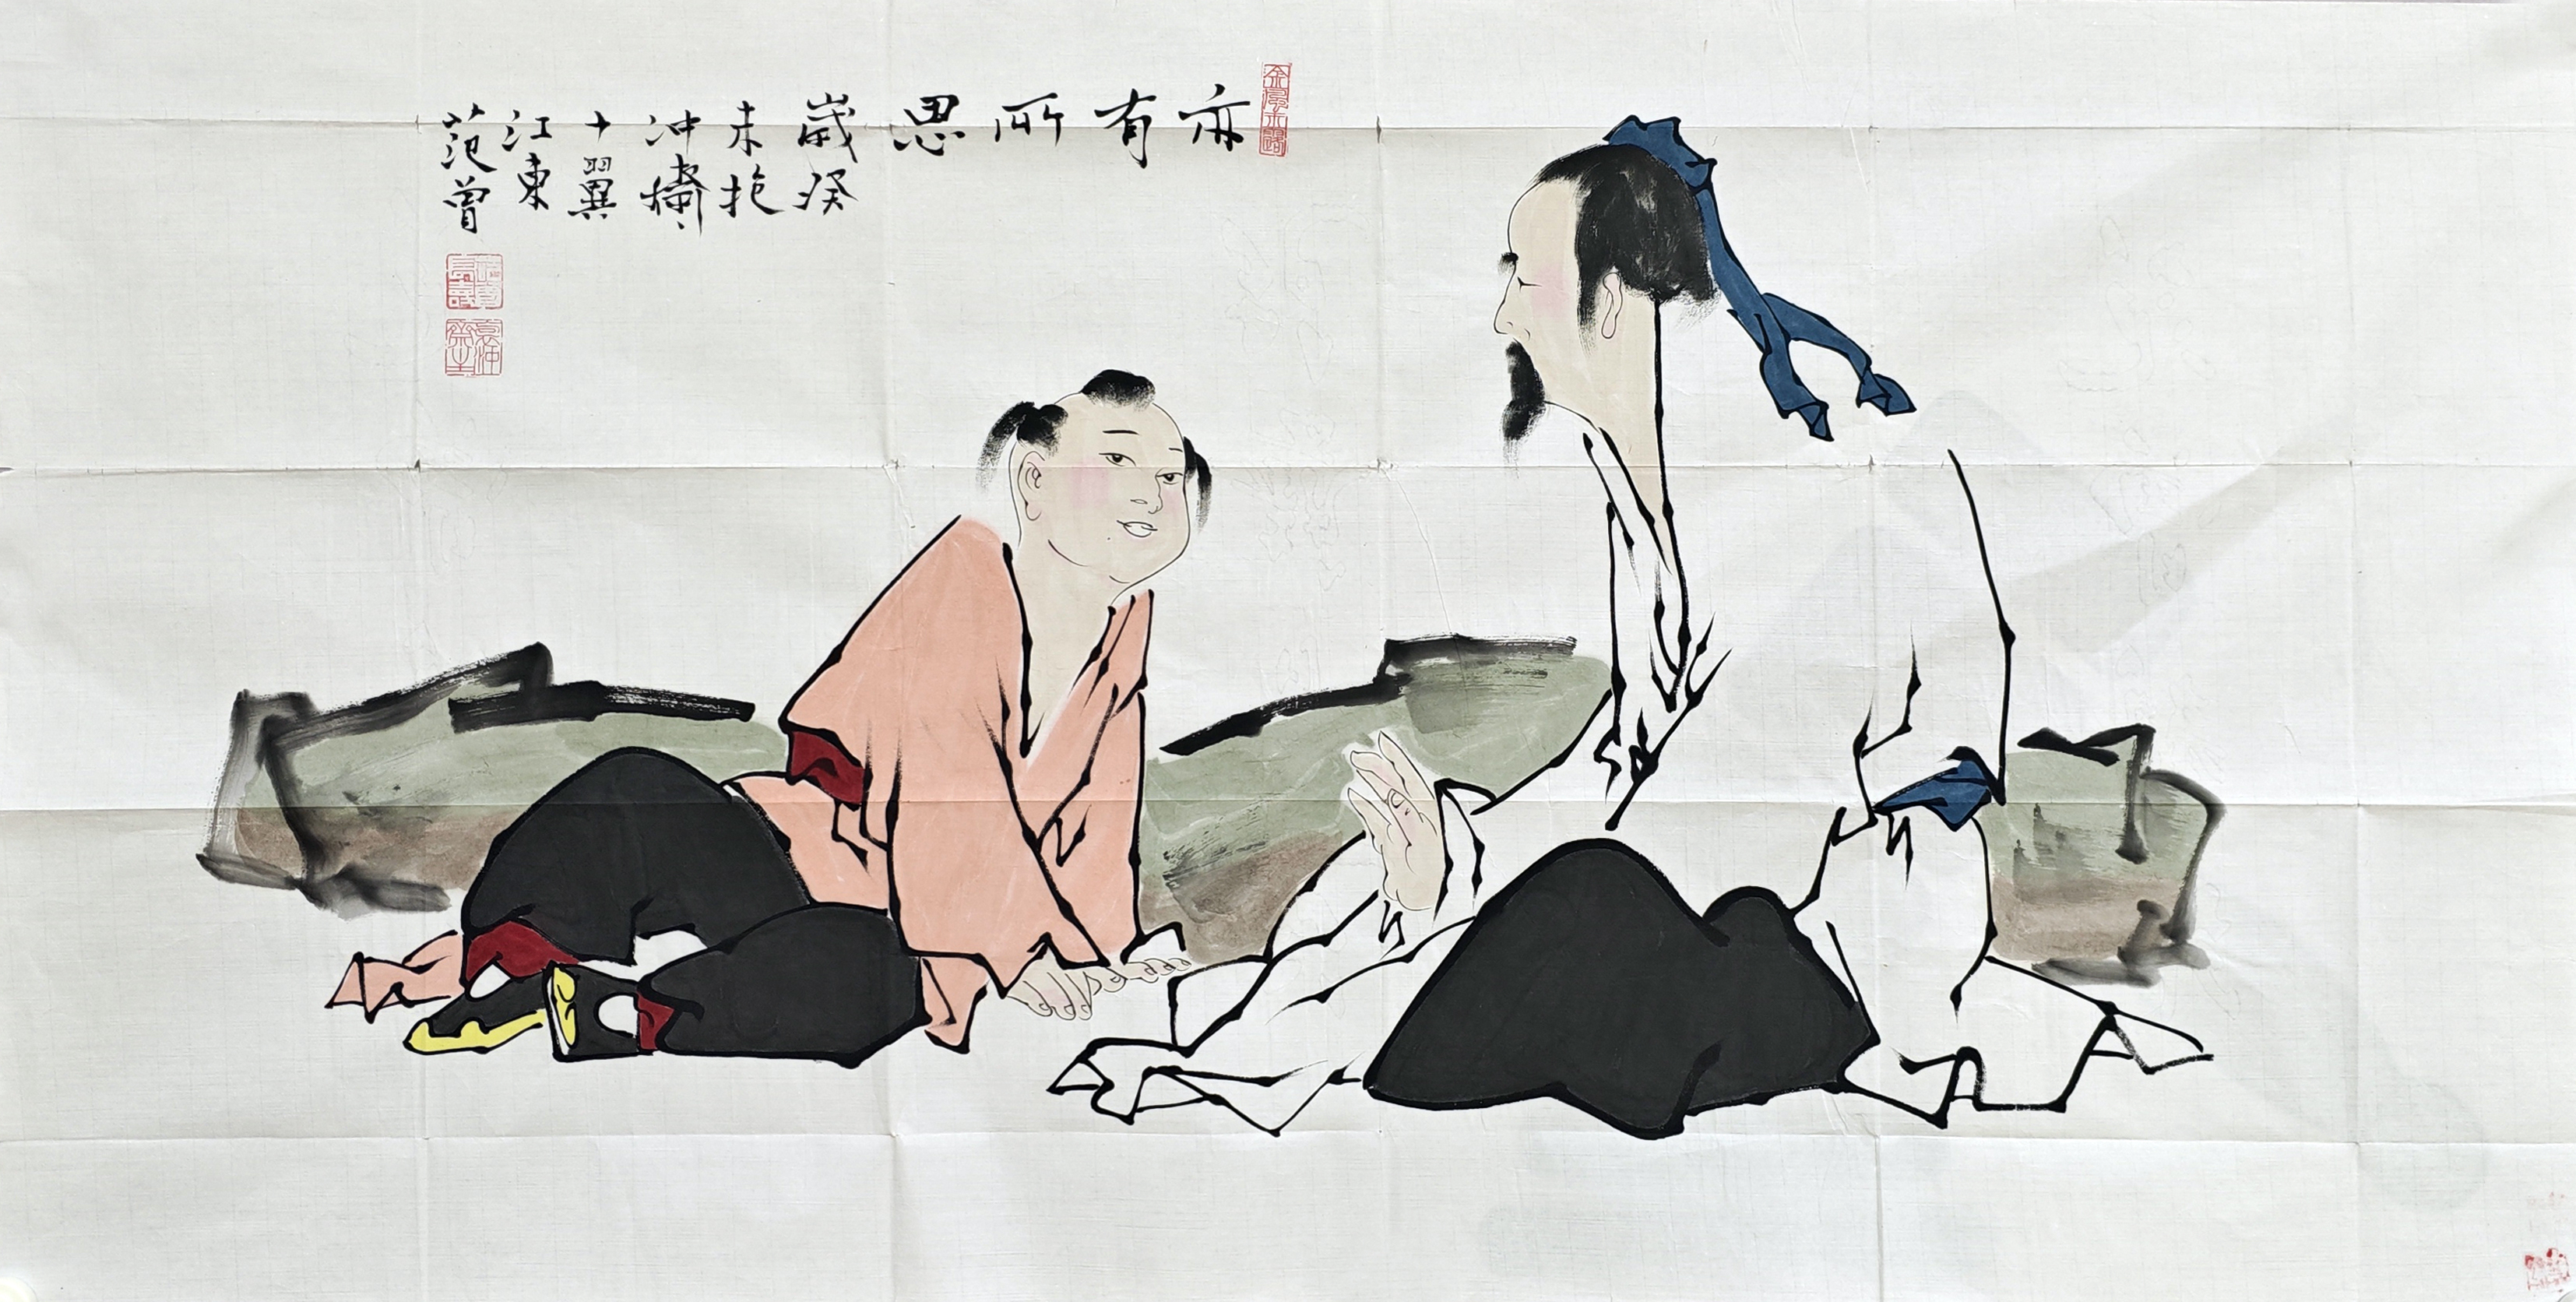 亦有所思
歲癸
未抱
冲齋
十翼
江東
范曾